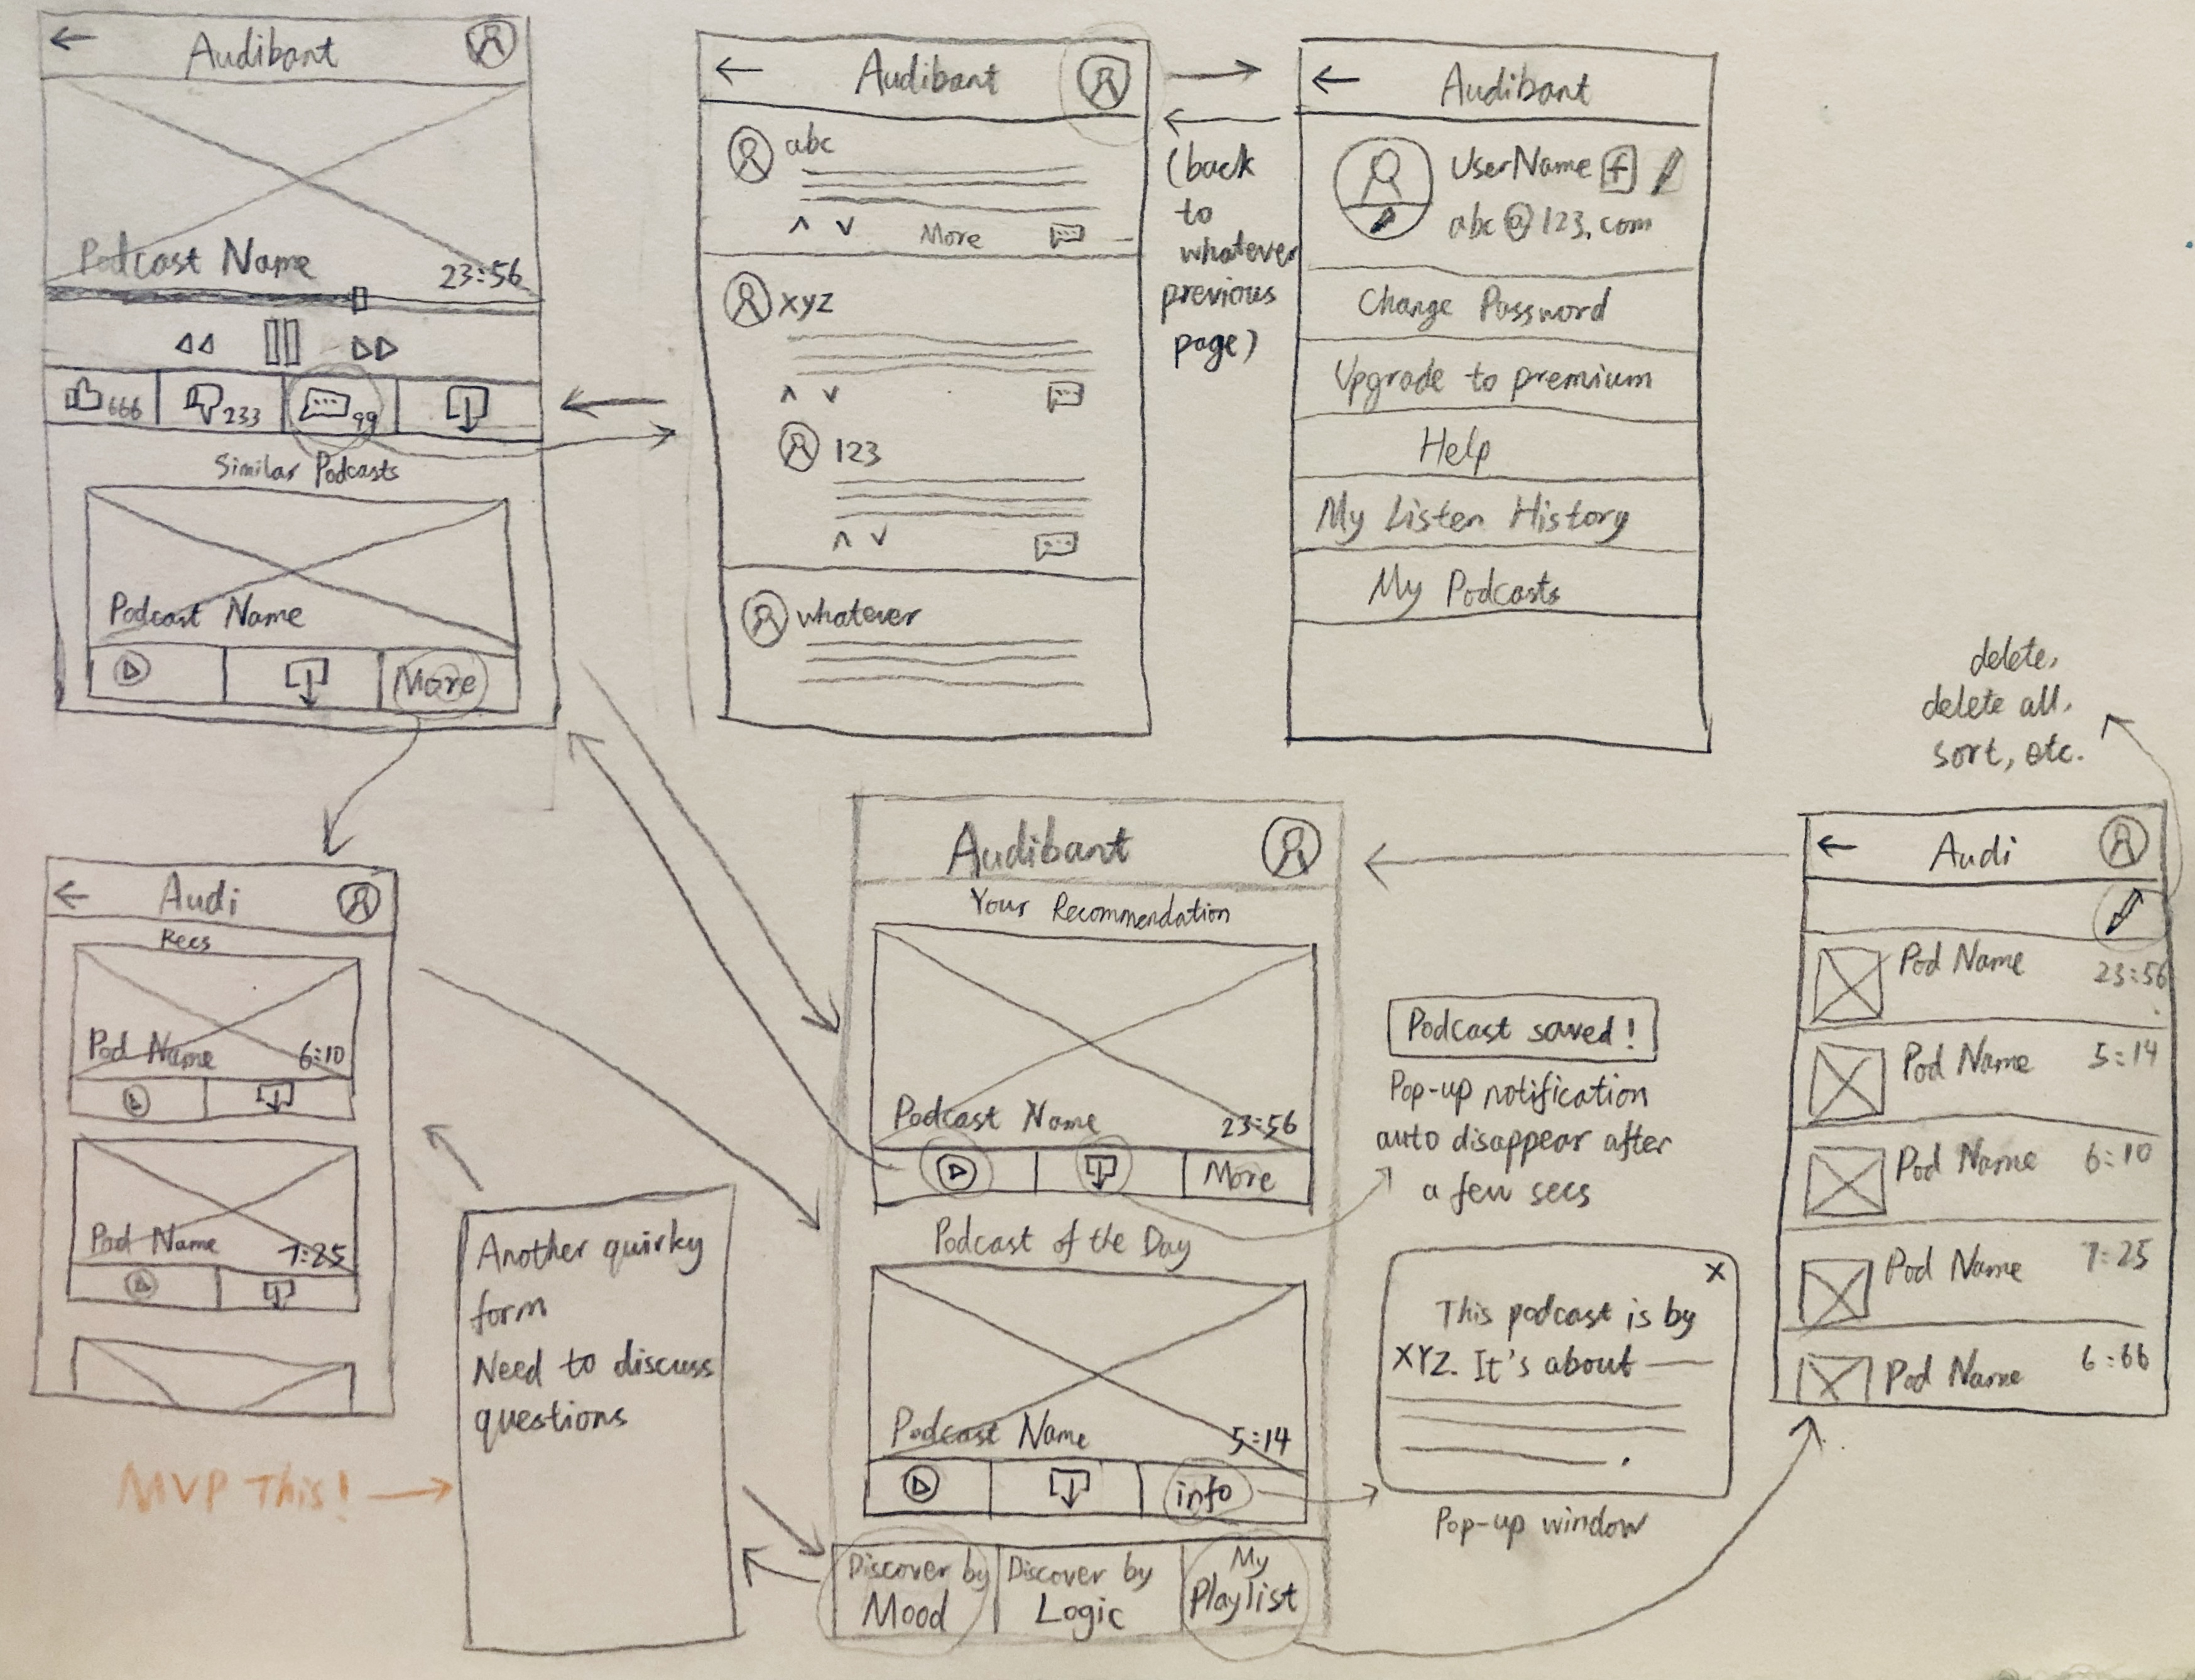 Audibant
Podcast Name
23:56
666
233
99
Similar Podcasts
Podcast Name
More
Audibant
abc
More
xyz
123
whatever
(back
to
whatever
previous
page)
Audibant
UserName
abc@123.com
Change Password
Upgrade to premium
Help
My Listen History
My Podcasts
delete,
delete all,
sort, etc.
Audi
Recs
Pod Name 6:10
Pod Name 7:25
MVP This!
Another quirky
form
Need to discuss
questions
Audibant
Your Recommendation
Podcast Name 23:56
More
Podcast of the Day
Podcast Name 5:14
info
Discover by
Mood
Discover by
Logic
My
Playlist
Podcast saved!
Pop-up notification
auto disappear after
a few secs
X
This podcast is by
XYZ. It's about
Pop-up window
Audi
Pod Name 23:56
Pod Name 5:14
Pod Name 6:10
Pod Name 7:25
Pod Name 6:66